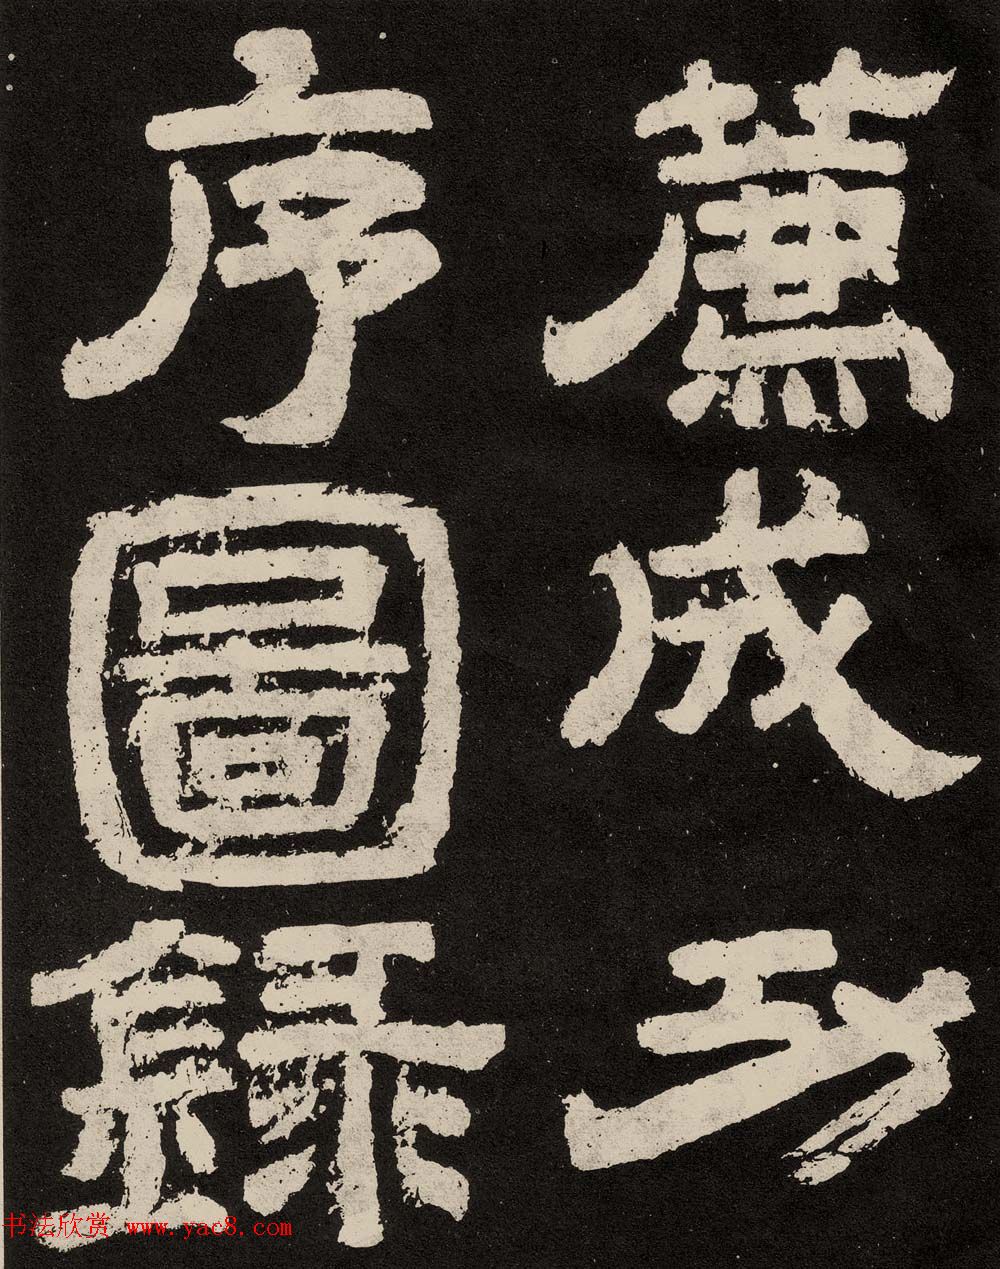 薦成功
序圖錄
书法欣赏 www.yac8.com